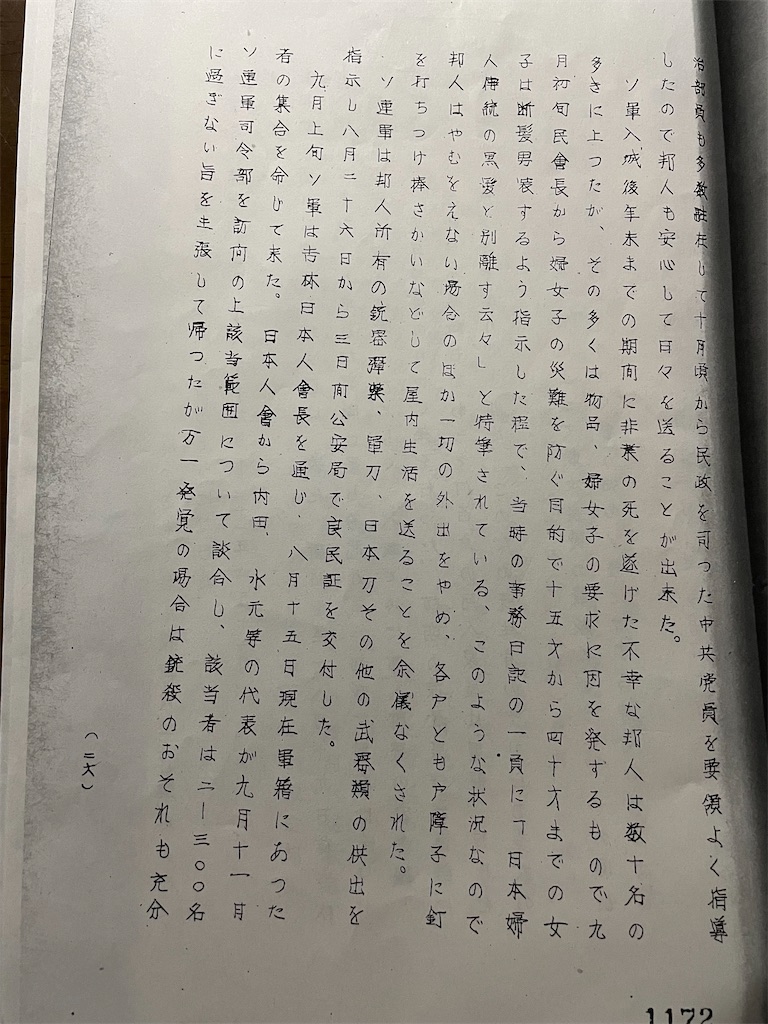 治部員も多数駐在して十月頃から民政を司つた中共党員を要領よく指導
したので邦人も安心して日々を送ることが出来た。
ソ軍入城後年末までの期间に非業の死を遂げた不幸な邦人は数十名の
多きに上つたが、その多くは物品、婦女子の要求に因を発するもので九
月初旬民會長から婦女子の災難を防ぐ目的で十五才から四十才までの女
子は断髪男装するよう指示した程で、当時の事務日記の一頁に「日本婦
人傳統の黒愛と別離す云々」と特筆されている、このような状況なので
邦人はやむをえない場合のほか一切の外出をやめ、各戸とも戸障子に釘
を打ちつけ棒さかいなどして屋内生活を送ることを余儀なくされた。
ソ連軍は邦人所有の銃器彈薬、軍刀、日本刀その他の武器類の供出を
指示し八月二十六日から三日间公安局で良民証を交付した。
九月上旬ソ軍は吉林日本人會長を通じ、八月十五日現在軍籍にあつた
者の集合を命じて来た。日本人會から内田、水元等の代表が九月十一日
ソ連軍司令部を訪问の上該当範囲について談合し、該当者は二ー三〇〇名
に過ぎない旨を主張して帰つたが万一発覚の場合は銃殺のおそれも充分
(二六)
1172